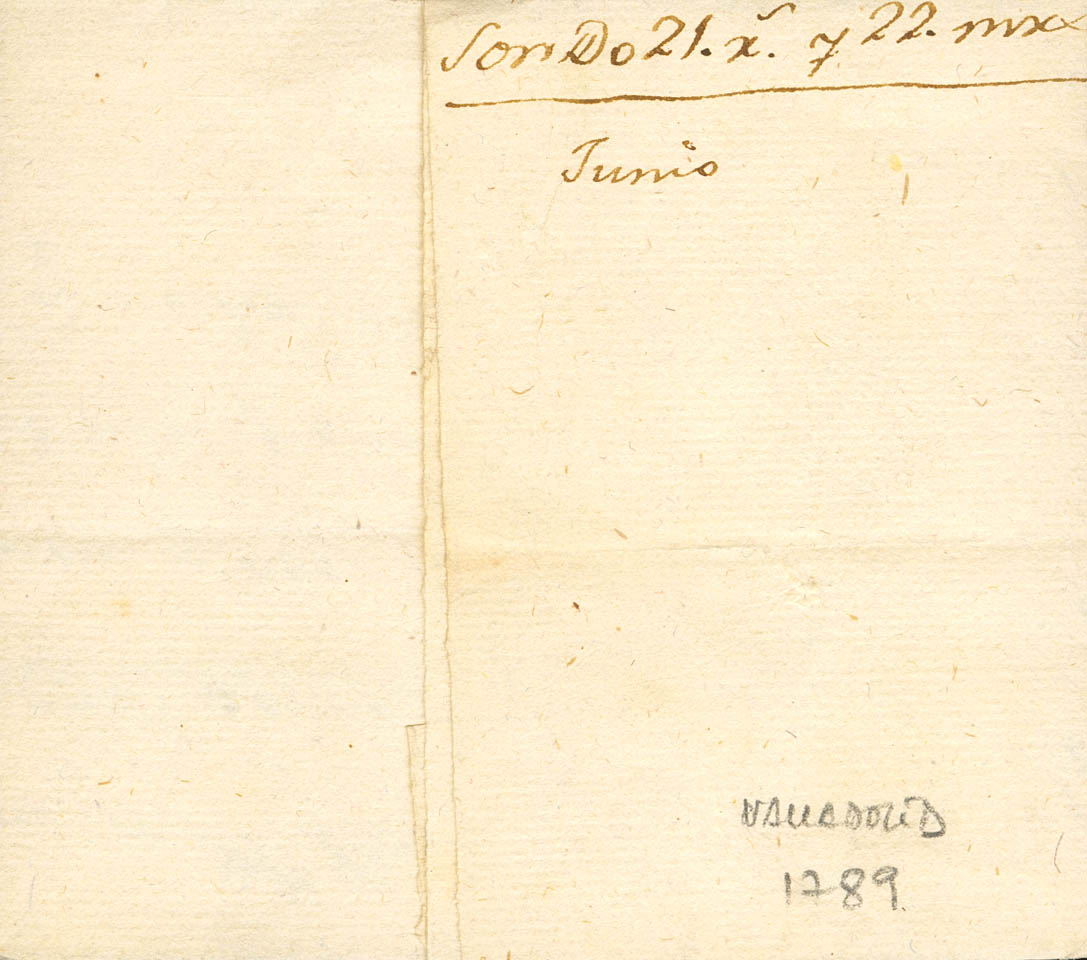 Son Do 21. rˢ. y 22. mrs
Junio
VALLADOLID
1789.